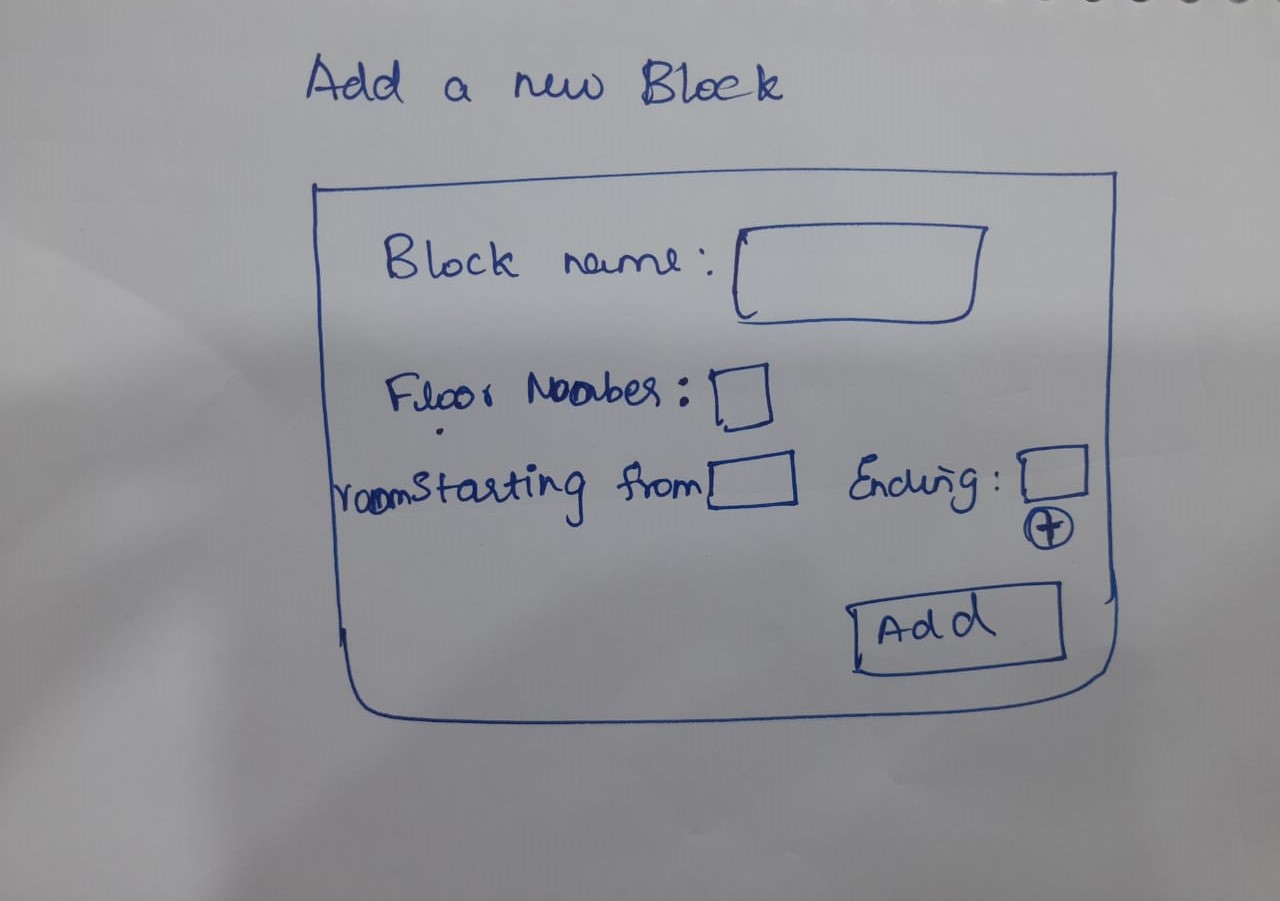 Add a new Block
Block name:
Floor Noombes:
room Starting from Ending:
+
Add